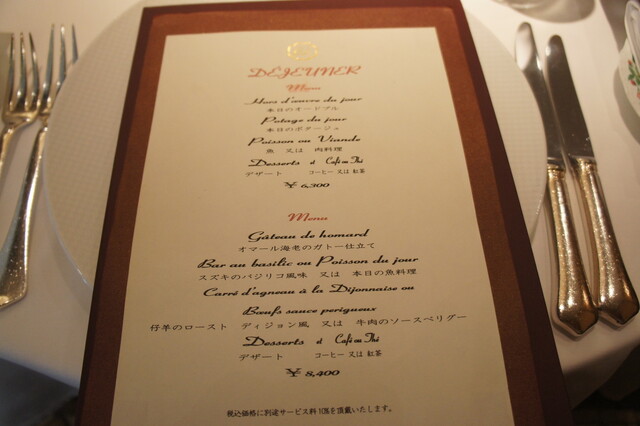 DÉJEUNER
Menu
Hors d'œuvre du jour
本日のオードブル
Potage du jour
本日のポタージュ
Poisson ou Viande
魚 又は 肉料理
Desserts et Café ou Thé
デザート コーヒー 又は 紅茶
¥ 6,300
Menu
Gâteau de homard
オマール海老のガトー仕立て
Bar au basilic ou Poisson du jour
スズキのバジリコ風味 又は 本日の魚料理
Carré d'agneau à la Dijonnaise ou
Bœufs sauce perigueux
仔羊のロースト ディジョン風 又は 牛肉のソースペリグー
Desserts et Café ou Thé
デザート コーヒー 又は 紅茶
¥ 8,400
税込価格に別途サービス料10%を頂戴いたします。